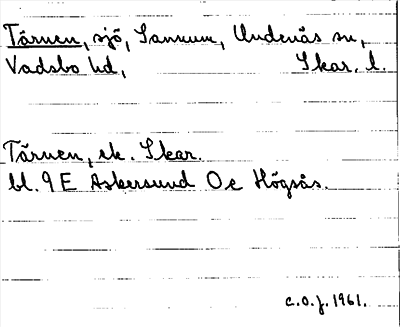 Tärnen, sjö, Sannum, Undenäs sn,
Vadsbo hd, Skar. l.
Tärnen, ek. Skar.
bl. 9 E Askersund O e Högsås.
c.o.j. 1961.